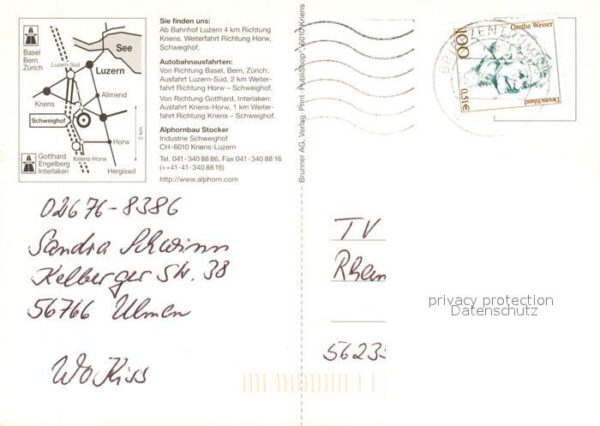 Basel
Bern
Zürich
See
Luzern-Süd
Luzern
Kriens
Allmend
Schweighof
2 km
Kriens-Horw
Horw
Gotthard
Engelberg
Interlaken
Hergiswil
Sie finden uns:
Ab Bahnhof Luzern 4 km Richtung
Kriens. Weiterfahrt Richtung Horw,
Schweighof.
Autobahnausfahrten:
Von Richtung Basel, Bern, Zürich:
Ausfahrt Luzern-Süd, 2 km Weiter-
fahrt Richtung Horw – Schweighof.
Von Richtung Gotthard, Interlaken:
Ausfahrt Kriens-Horw, 1 km Weiter-
fahrt Richtung Kriens – Schweighof.
Alphornbau Stocker
Industrie Schweighof
CH-6010 Kriens-Luzern
Tel. 041-340 88 86, Fax 041-340 88 16
(++41-41-340 88 16)
http://www.alphorn.com
Brunner AG, Verlag · Print · PubliShop · 6010 Kriens
Grethe Weiser
100
0,51€
Deutschland
02676-8386
Sandra Schwinn
Kelberger Str. 38
56766 Ulmen
WoKiss
TV
Rhein
56235
privacy protection
Datenschutz